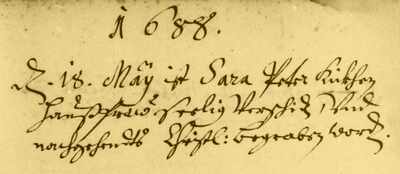 1688.
D. 18. Maÿ ist Sara Peter Küthen
Haußfraw seelig verschid, vnd
nachgehendts Christl: begraben word.